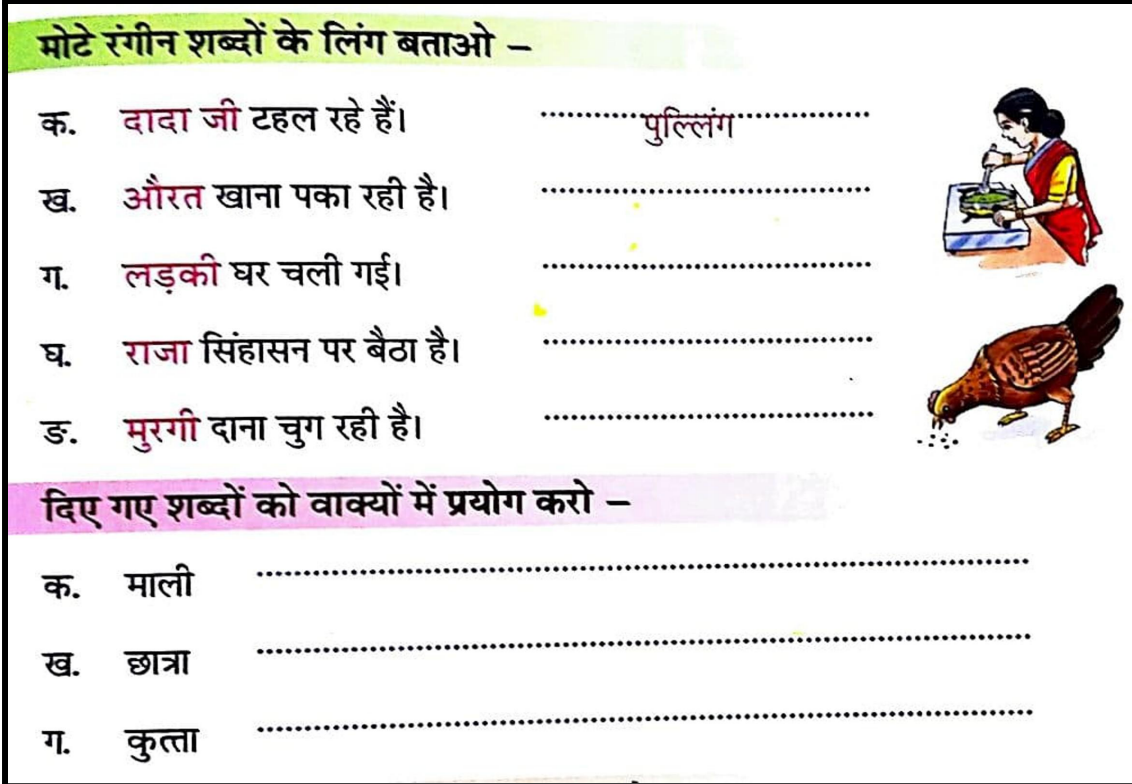 मोटे रंगीन शब्दों के लिंग बताओ –
क. दादा जी टहल रहे हैं। पुल्लिंग
ख. औरत खाना पका रही है।
ग. लड़की घर चली गई।
घ. राजा सिंहासन पर बैठा है।
ङ. मुरगी दाना चुग रही है।
दिए गए शब्दों को वाक्यों में प्रयोग करो –
क. माली
ख. छात्रा
ग. कुत्ता